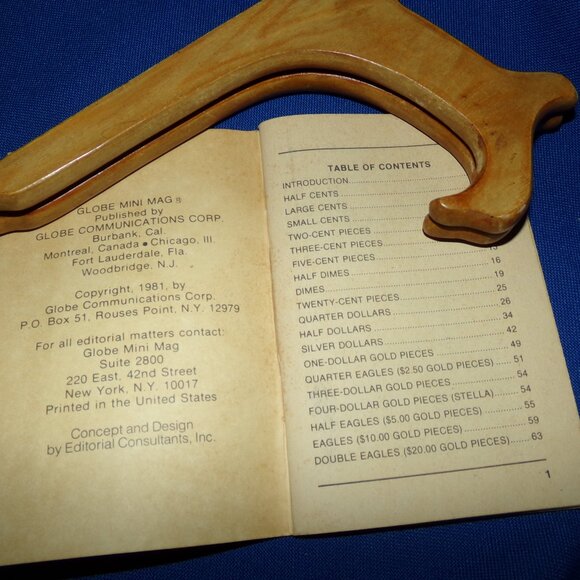 GLOBE MINI MAG ®
Published by
GLOBE COMMUNICATIONS CORP.
Burbank, Cal.
Montreal, Canada • Chicago, Ill.
Fort Lauderdale, Fla.
Woodbridge, N.J.
Copyright, 1981, by
Globe Communications Corp.
P.O. Box 51, Rouses Point, N.Y. 12979
For all editorial matters contact:
Globe Mini Mag
Suite 2800
220 East, 42nd Street
New York, N.Y. 10017
Printed in the United States
Concept and Design
by Editorial Consultants, Inc.
TABLE OF CONTENTS
INTRODUCTION
HALF CENTS
LARGE CENTS
SMALL CENTS
TWO-CENT PIECES
THREE-CENT PIECES
FIVE-CENT PIECES
HALF DIMES 16
DIMES 19
TWENTY-CENT PIECES 25
QUARTER DOLLARS 26
HALF DOLLARS 34
SILVER DOLLARS 42
ONE-DOLLAR GOLD PIECES 49
QUARTER EAGLES ($2.50 GOLD PIECES) 51
THREE-DOLLAR GOLD PIECES 54
FOUR-DOLLAR GOLD PIECES (STELLA) 54
HALF EAGLES ($5.00 GOLD PIECES) 55
EAGLES ($10.00 GOLD PIECES) 59
DOUBLE EAGLES ($20.00 GOLD PIECES) 63
1